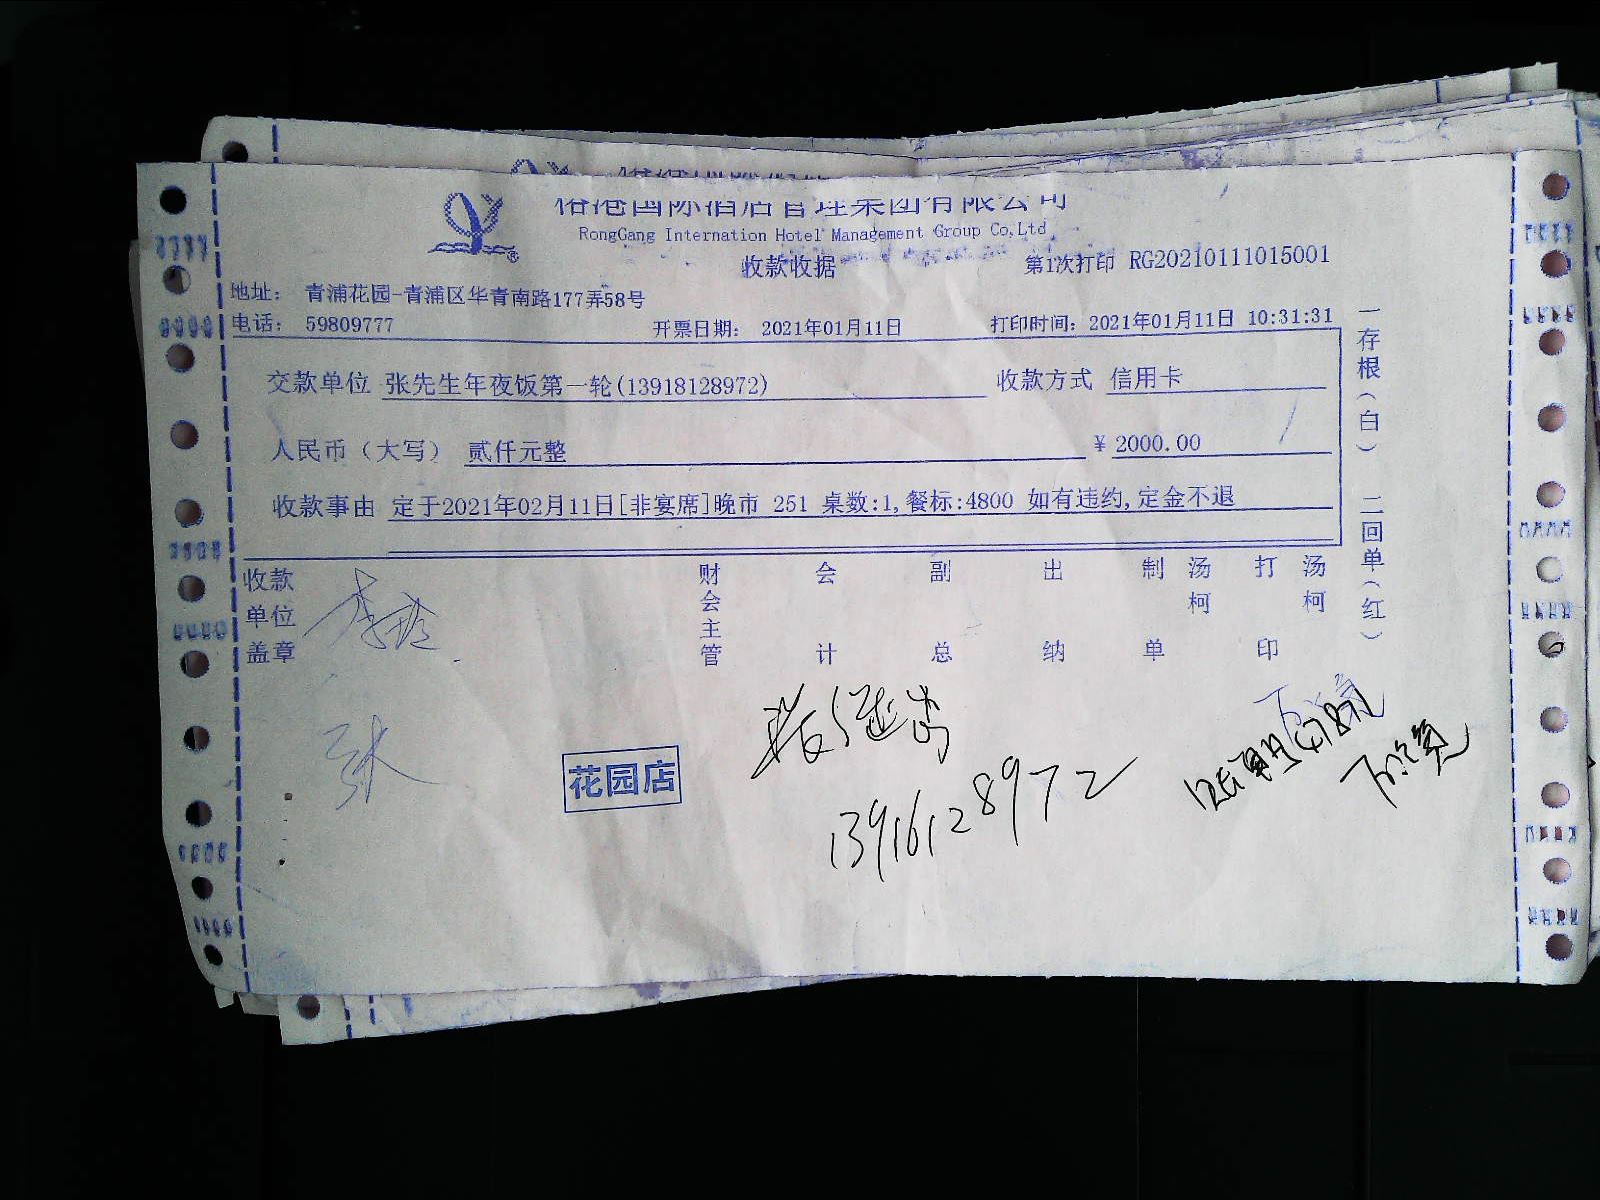 榕港国际酒店管理集团有限公司
RongGang Internation Hotel Management Group Co,Ltd
收款收据 第1次打印 RG20210111015001
地址： 青浦花园-青浦区华青南路177弄58号
电话： 59809777 开票日期： 2021年01月11日 打印时间：2021年01月11日 10:31:31
交款单位 张先生年夜饭第一轮(13918128972) 收款方式 信用卡
人民币（大写） 贰仟元整 ￥2000.00
收款事由 定于2021年02月11日[非宴席]晚市 251 桌数:1,餐标:4800 如有违约,定金不退
收款单位盖章 财会主管 会计 副总 出纳 制单 汤柯 打印 汤柯
一存根（白） 二回单（红）
张
花园店
13916128972